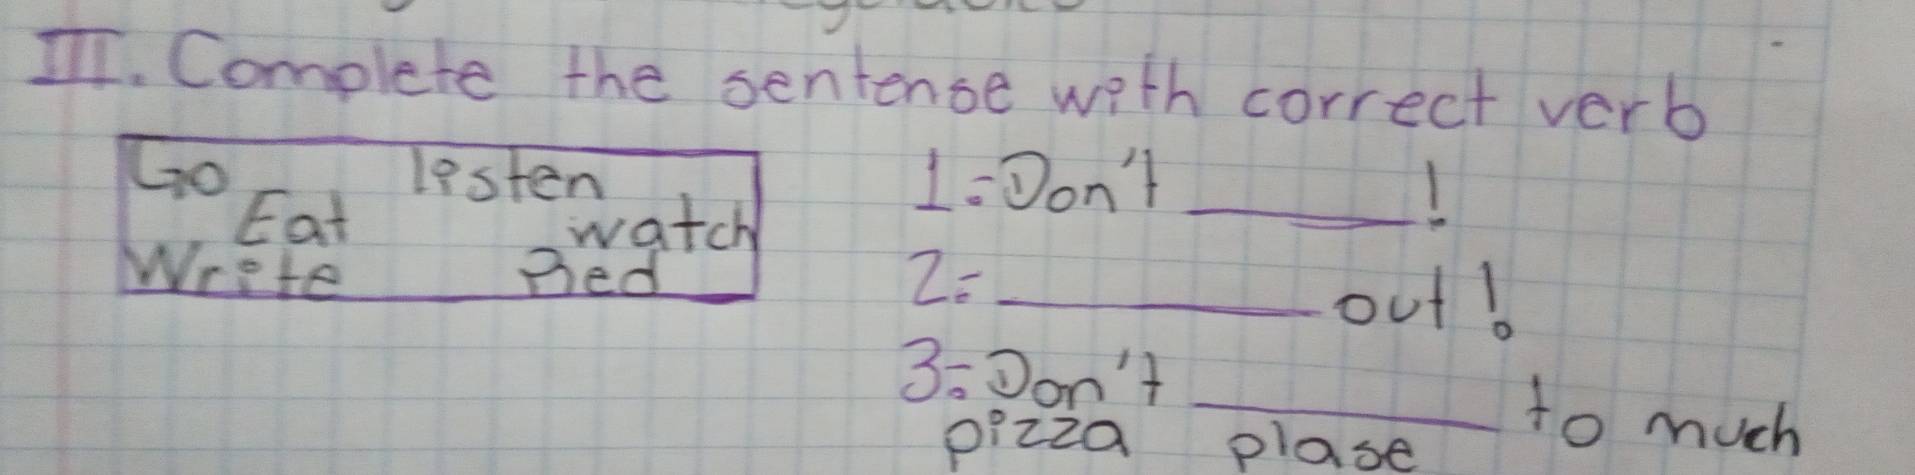 III. Complete the sentense with correct verb
Go listen
Eat watch
Write Red
1=Don't ______!
2= ______ out!
3=Don't ______ to much
pizza plase